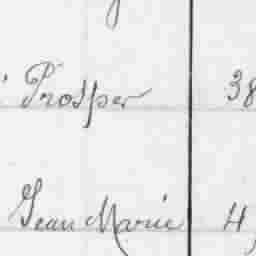 Prosper 38
Jean Marie 4